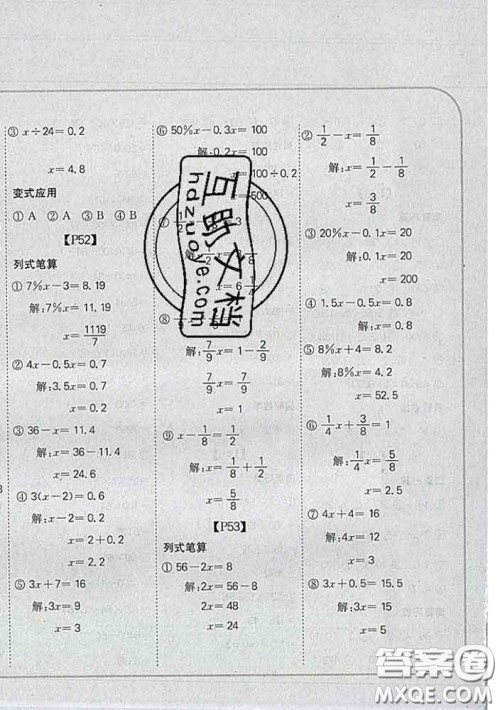 ③ x÷24=0.2
x=4.8
变式应用
① A ② A ③ B ④ B
【P52】
列式笔算
① 7%x-3=8.19
解:7%x=11.19
x=1119/7
② 4x-0.5x=0.7
解:3.5x=0.7
x=0.2
③ 36-x=11.4
解:x=36-11.4
x=24.6
④ 3(x-2)=0.6
解:x-2=0.2
x=2+0.2
x=2.2
⑤ 3x+7=16
解:3x=9
x=3
⑥ 50%x-0.3x=100
解:0.2x=100
x=100÷0.2
x=500
⑧
解:7/9 x=1-2/9
7/9 x=7/9
x=1
⑨ x-1/8=1/2
解:x=1/8+1/2
x=5/8
【P53】
列式笔算
① 56-2x=8
解:2x=56-8
2x=48
x=24
② 1/2-x=1/8
解:x=1/2-1/8
x=3/8
③ 20%x-3=37
解:20%x=40
x=200
④ 1.5x-0.5x=0.8
解:x=0.8
⑤ 8%x+4=8.2
解:8%x=4.2
x=52.5
⑥ 1/4 x+3/8=1
解:1/4 x=5/8
x=2.5
⑦ 4x+4=16
解:4x=12
x=3
⑧ 3x+0.5=15.5
解:3x=15
x=5
互助文档
hdzuoye.com
答案卷
MXQE.COM